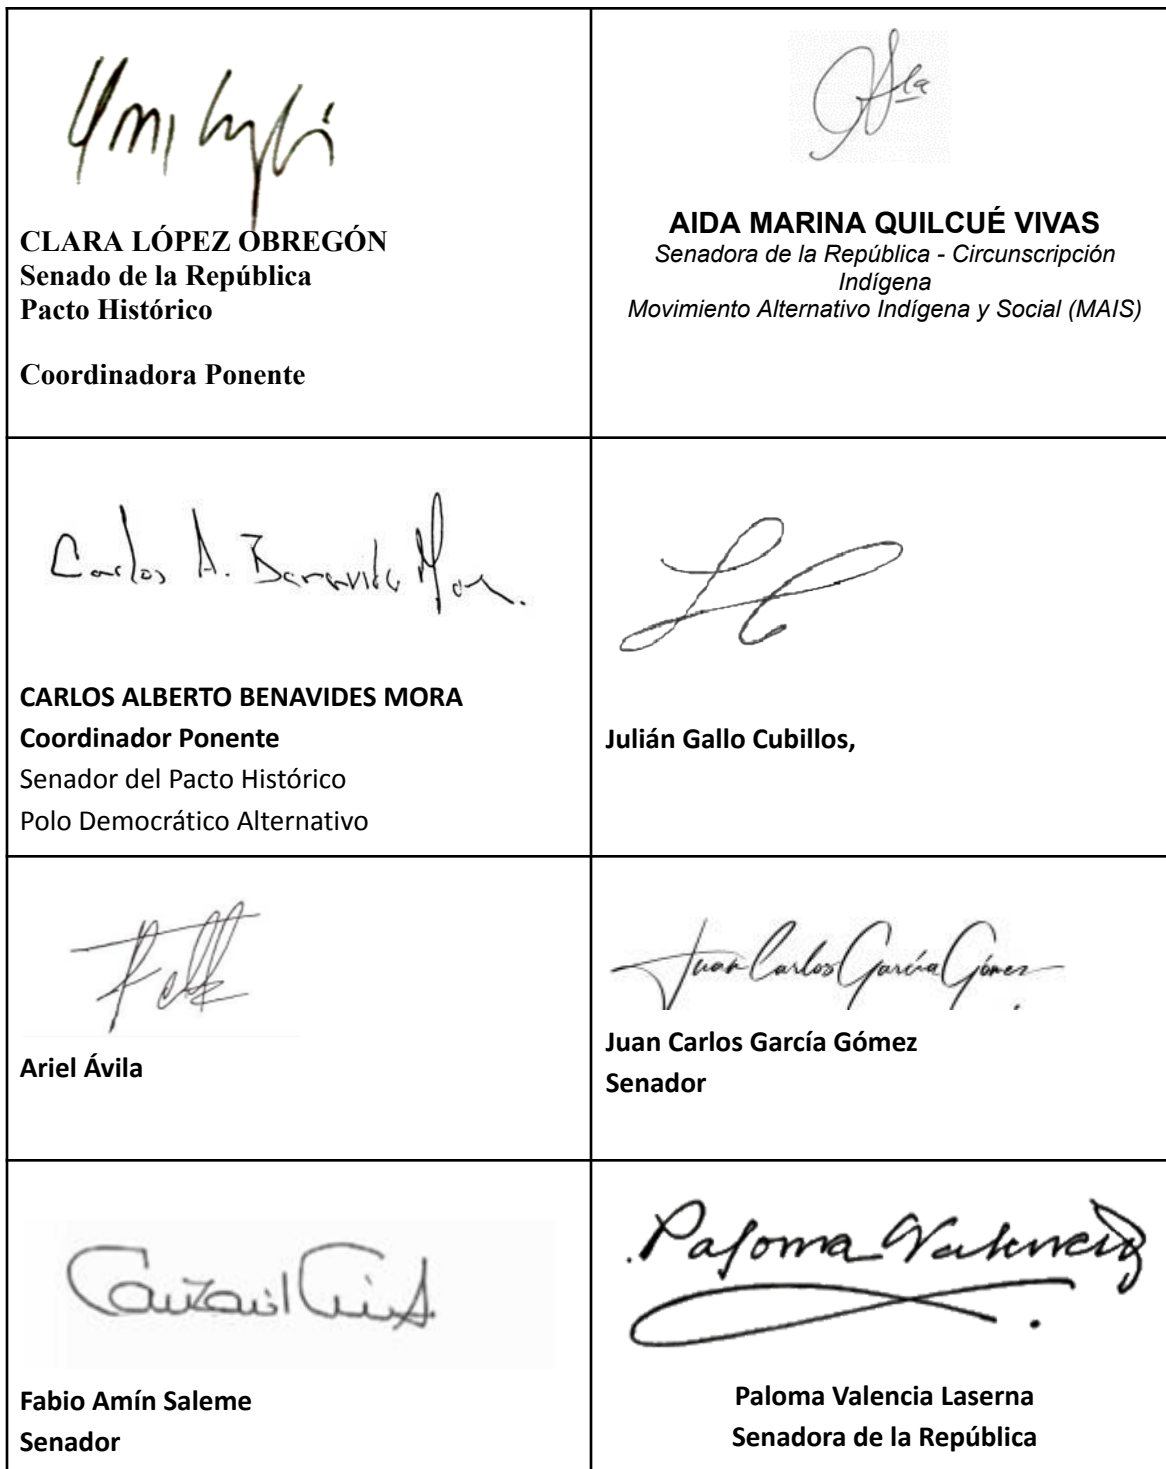 CLARA LÓPEZ OBREGÓN
Senado de la República
Pacto Histórico
Coordinadora Ponente
AIDA MARINA QUILCUÉ VIVAS
Senadora de la República - Circunscripción
Indígena
Movimiento Alternativo Indígena y Social (MAIS)
Carlos A. Benavides Mora.
CARLOS ALBERTO BENAVIDES MORA
Coordinador Ponente
Senador del Pacto Histórico
Polo Democrático Alternativo
Julián Gallo Cubillos,
Ariel Ávila
Juan Carlos García Gómez
Juan Carlos García Gómez
Senador
Fabio Amín Saleme
Senador
Paloma Valencia
Paloma Valencia Laserna
Senadora de la República